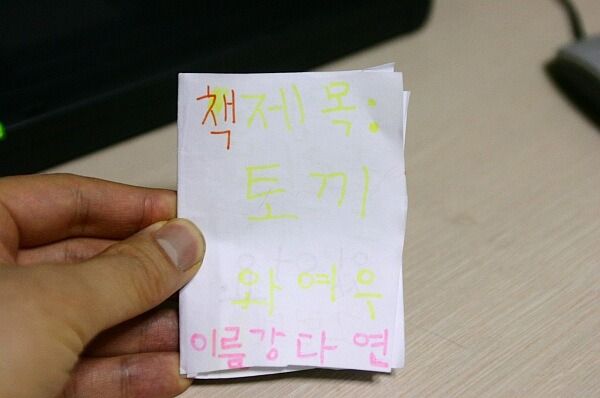 책제목:
토끼
와여우
이름강다연